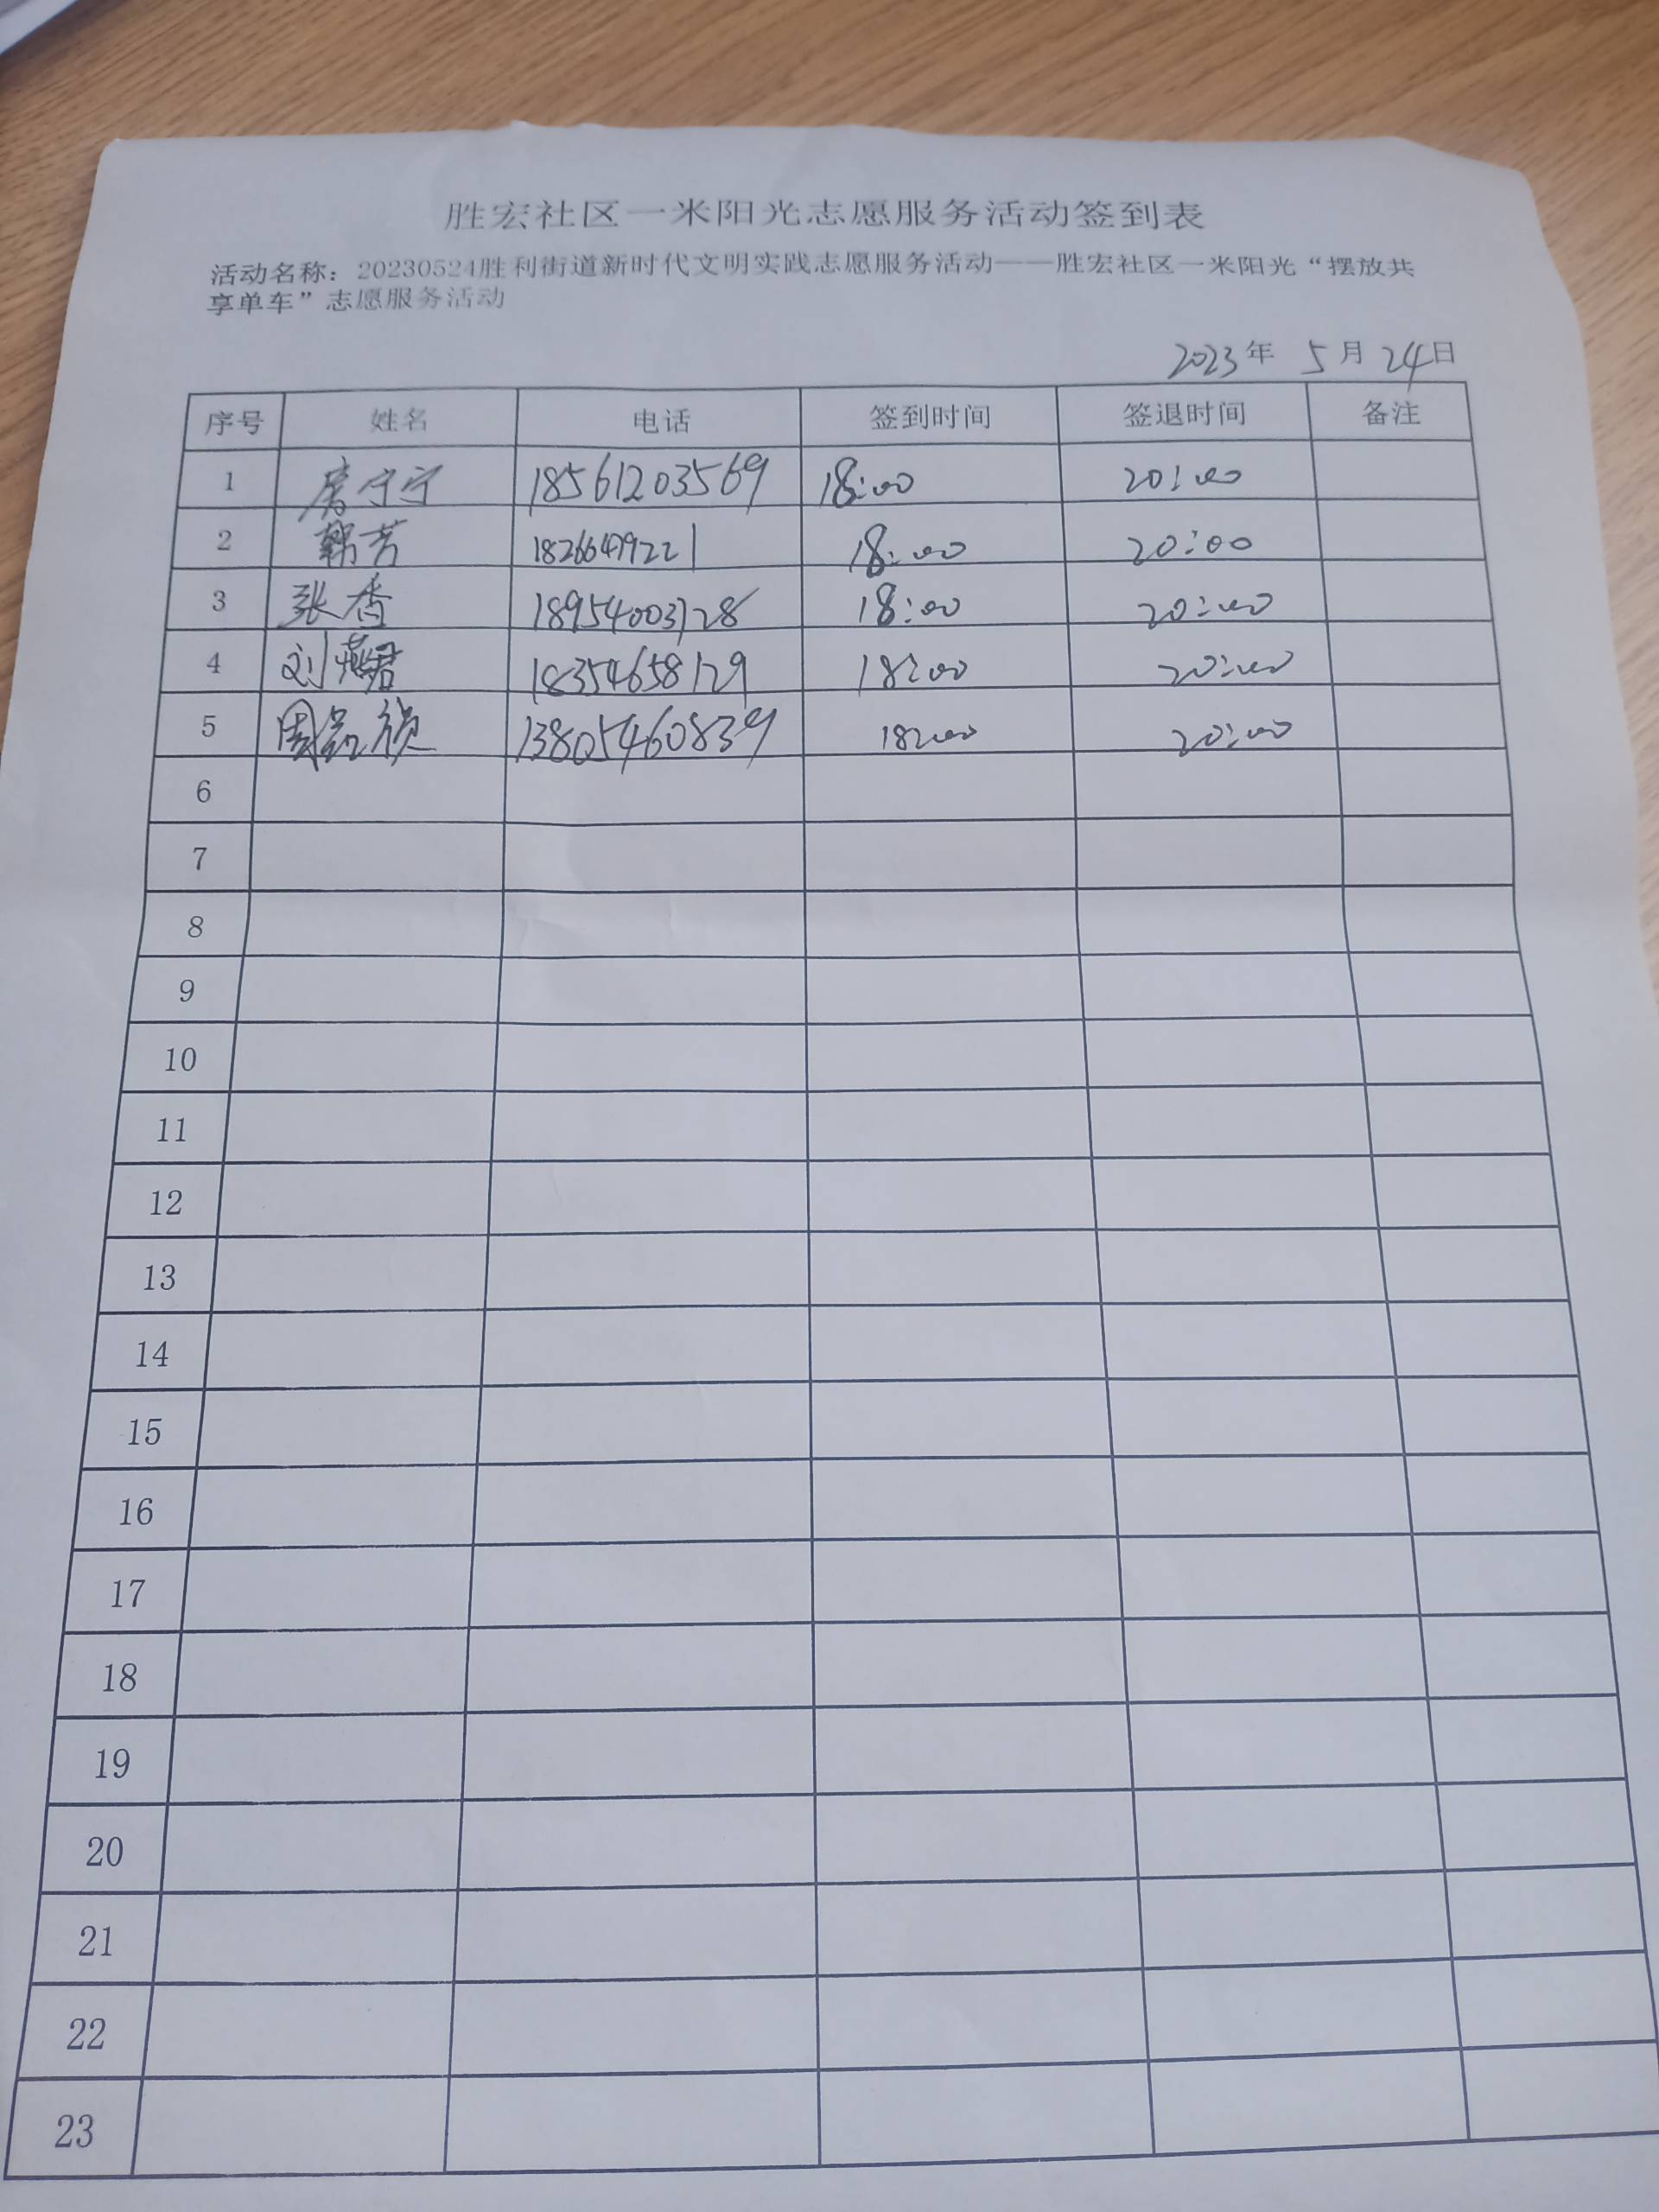 胜宏社区一米阳光志愿服务活动签到表
活动名称：20230524胜利街道新时代文明实践志愿服务活动——胜宏社区一米阳光“摆放共
享单车”志愿服务活动
2023年 5月24日
序号 姓名 电话 签到时间 签退时间 备注
1 房宁宁 18561203569 18:00 20:00
2 韩芳 18266479221 18:00 20:00
3 张香 18954003728 18:00 20:00
4 刘燕君 18354658129 18:00 20:00
5 周 13805460839 18:00 20:00
6
7
8
9
10
11
12
13
14
15
16
17
18
19
20
21
22
23